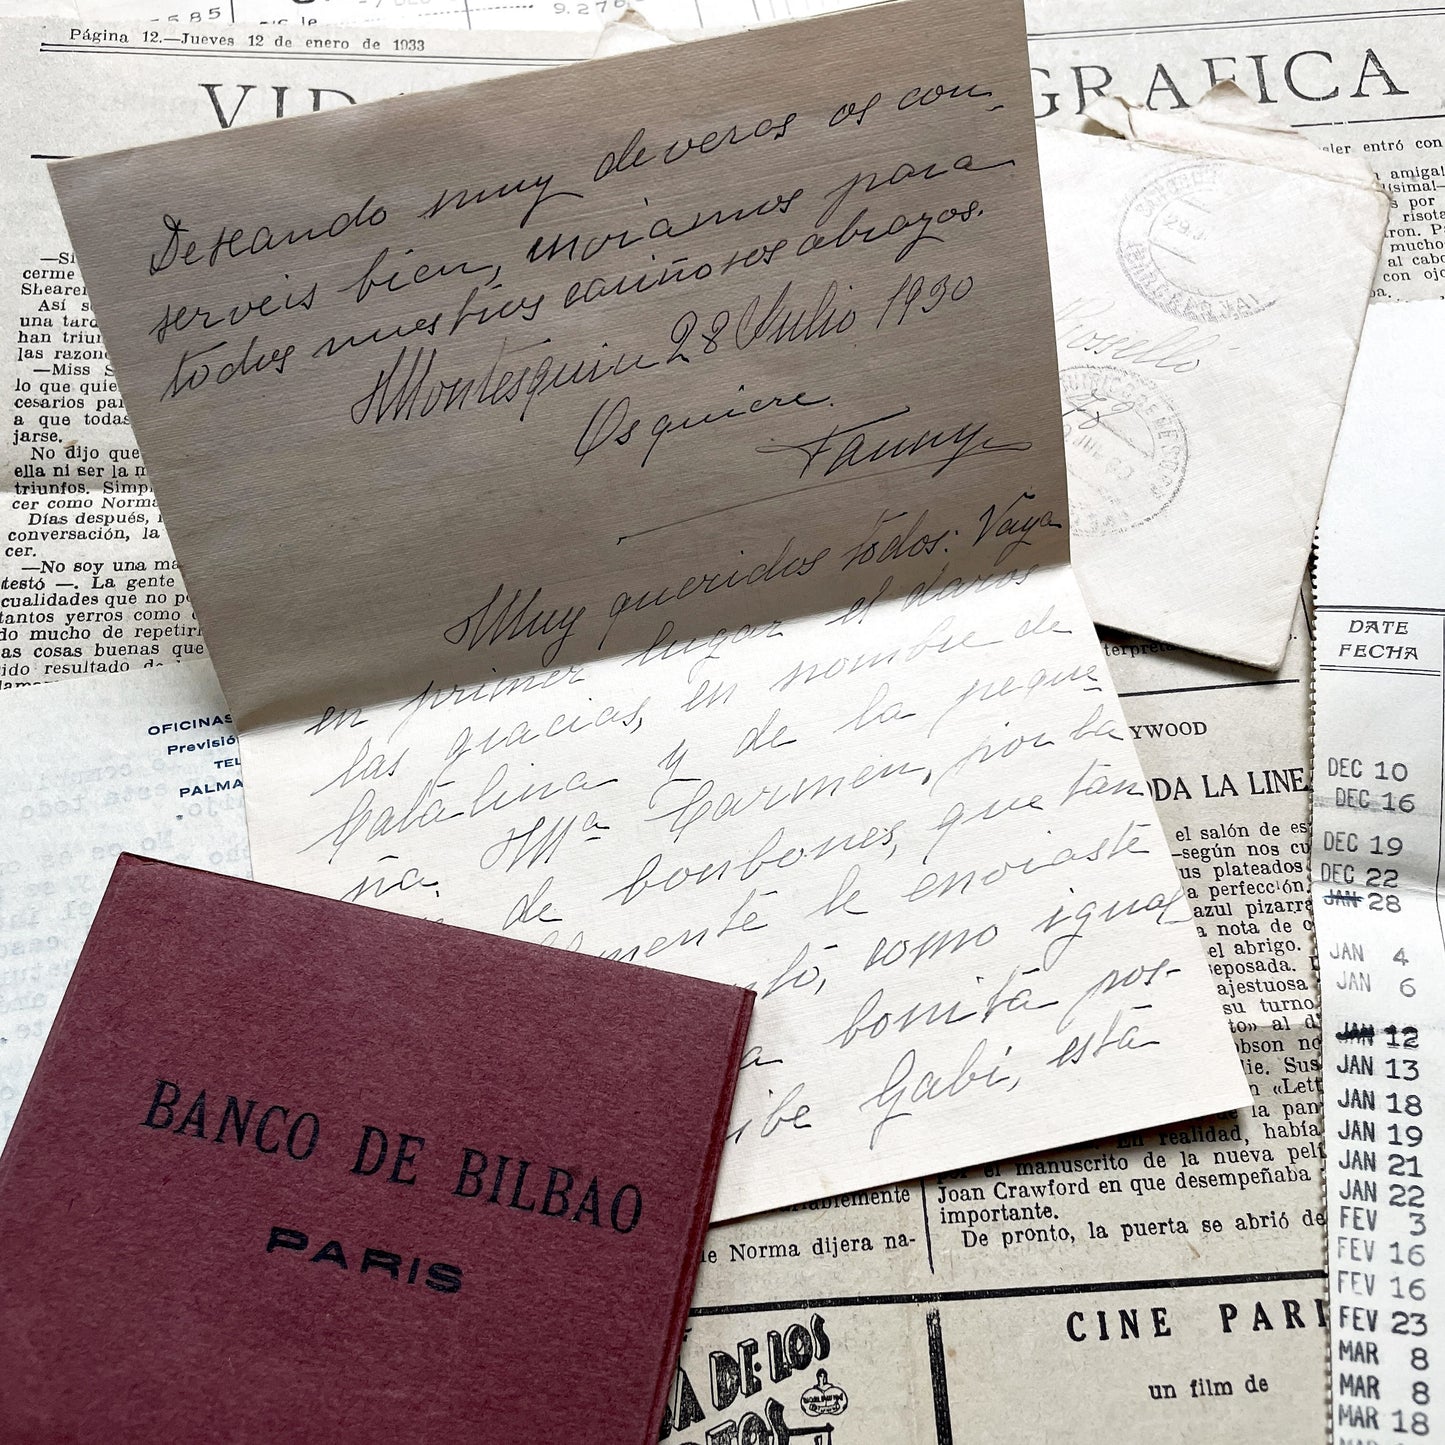 5 85
-7 DEC
9.276.
Página 12.—Jueves 12 de enero de 1933
VID
GRAFICA
Deseando muy deveras os con-
serveis bien, enviamos para
todos nuestros cariñosos abrazos.
Montesquiu 28 Julio 1930
Os quiere
Fanny
Muy queridos todos: Vaya
en primer lugar el daros
las gracias, en nombre de
Catalina y de la peque-
ña Mª Carmen, por la
de bonbones, que tan
mente le enviaste
como igual
bonita pos-
Gabi, está
Rosselló
BANCO DE BILBAO
PARIS
cerme
Shearer
Así s
una tard
han triun
las razone
—Miss S
lo que quie
cesarios par
a que todas
jarse.
No dijo que
ella ni ser la m
triunfos. Simp
cer como Norma
Días después,
conversación, la
cer.
—No soy una ma
testó —. La gente
cualidades que no po
tantos yerros como
do mucho de repetir
as cosas buenas que
ido resultado de
OFICINAS
Previsió
TEL
PALMA
sler entró con
amigal—
por
risota
ron. P
mucho
al cabo
con ojo
YWOOD
ODA LA LINE
el salón de es
—según nos cu
us plateados
a perfección.
azul pizarra
a nota de c
el abrigo.
eposada.
ajestuosa
su turno
to» al d
obson no
ie. Sus
«Lett
la pan
En realidad, había
por el manuscrito de la nueva pelí
Joan Crawford en que desempeñaba
importante.
De pronto, la puerta se abrió de
ablemente
le Norma dijera na-
A DE LOS
CINE PARI
un film de
DATE
FECHA
DEC 10
DEC 16
DEC 19
DEC 22
JAN 28
JAN 4
JAN 6
JAN 12
JAN 13
JAN 18
JAN 19
JAN 21
JAN 22
FEV 3
FEV 16
FEV 16
FEV 23
MAR 8
MAR 8
MAR 18